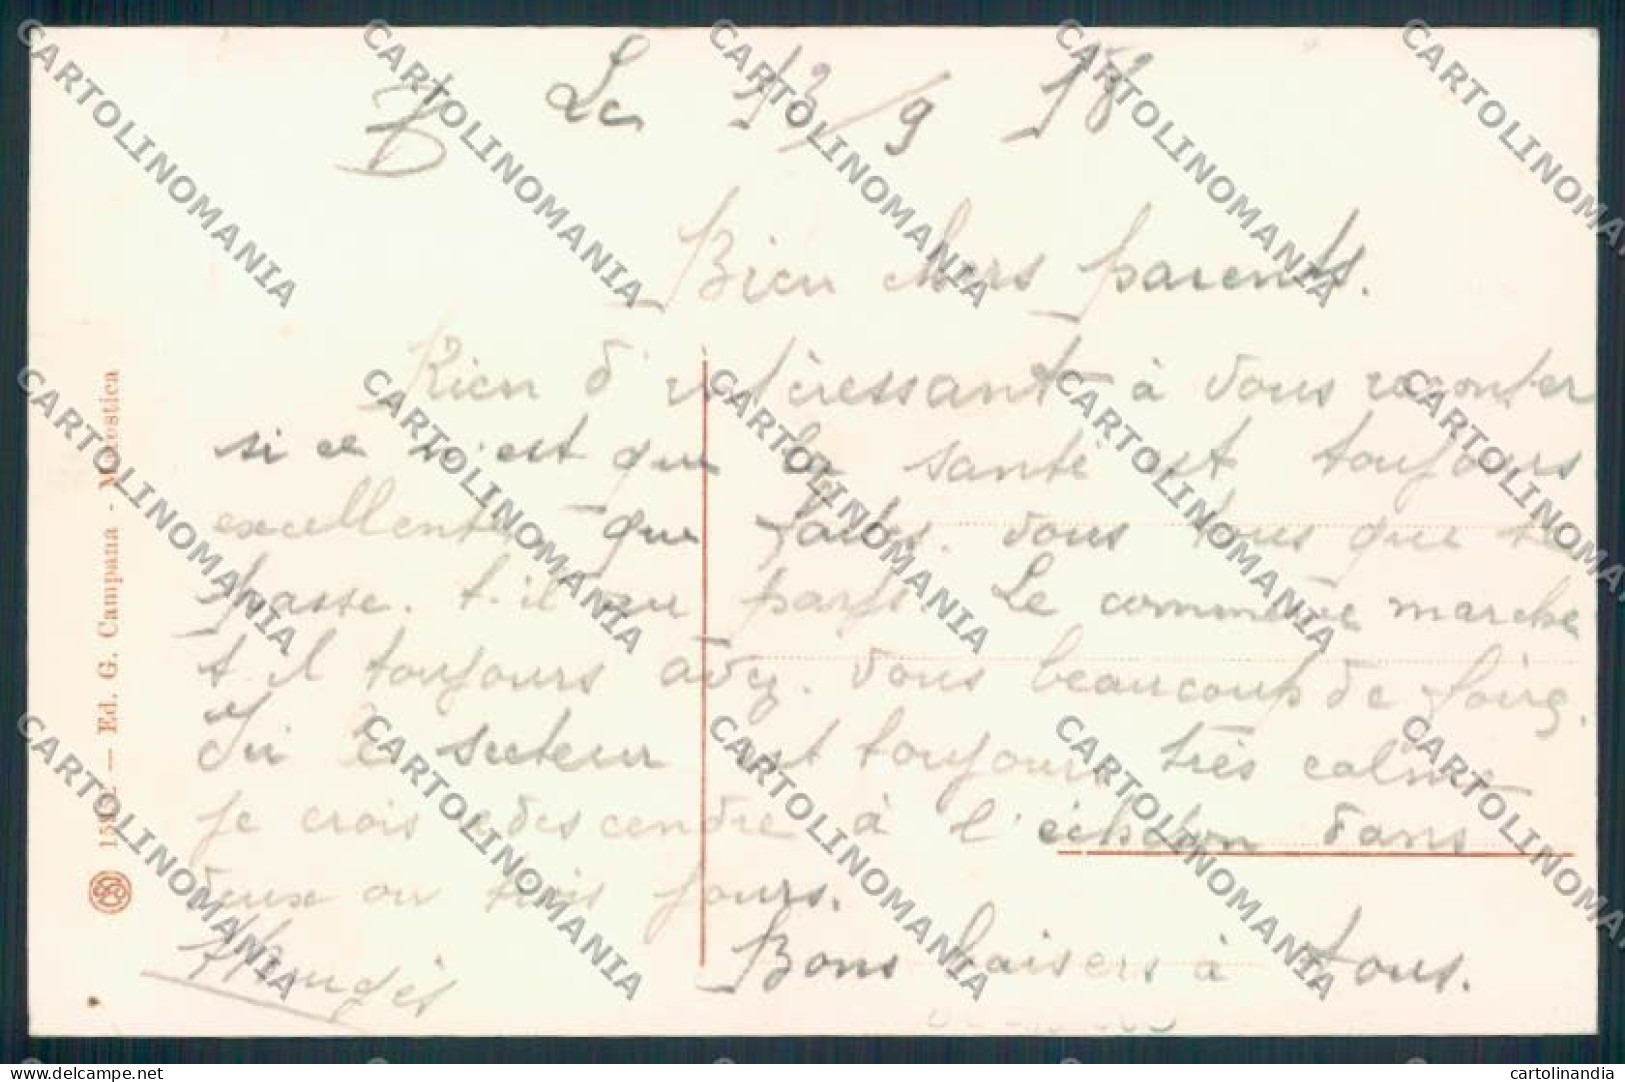 Le 12/9 18
Bien chers parents.
Rien d'intéressant à vous raconter
si ce n'est que la santé est toujours
excellente, que faites. vous tous que se
passe. t. il au pays. Le commerce marche
t. il toujours avez. vous beaucoup de foire.
Ici le secteur est toujours très calme
je crois redescendre à l'échelon dans
deux ou trois jours.
Bons baisers à tous.
15802 — Ed. G. Campana - Marostica
CARTOLINOMANIA
delcampe.net
cartolinandia